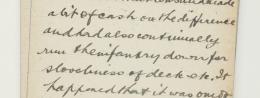 a bit of cash on the difference
and had also continually
run the infantry down for
slovenliness of deck etc. It
happened that it was one of